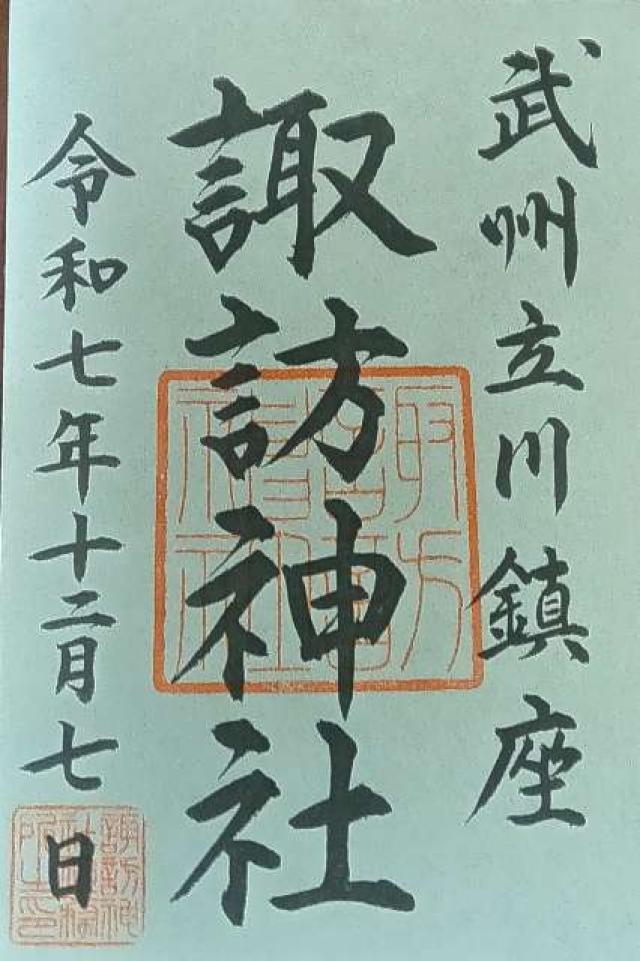 武州立川鎮座
諏訪神社
令和七年十二月七日